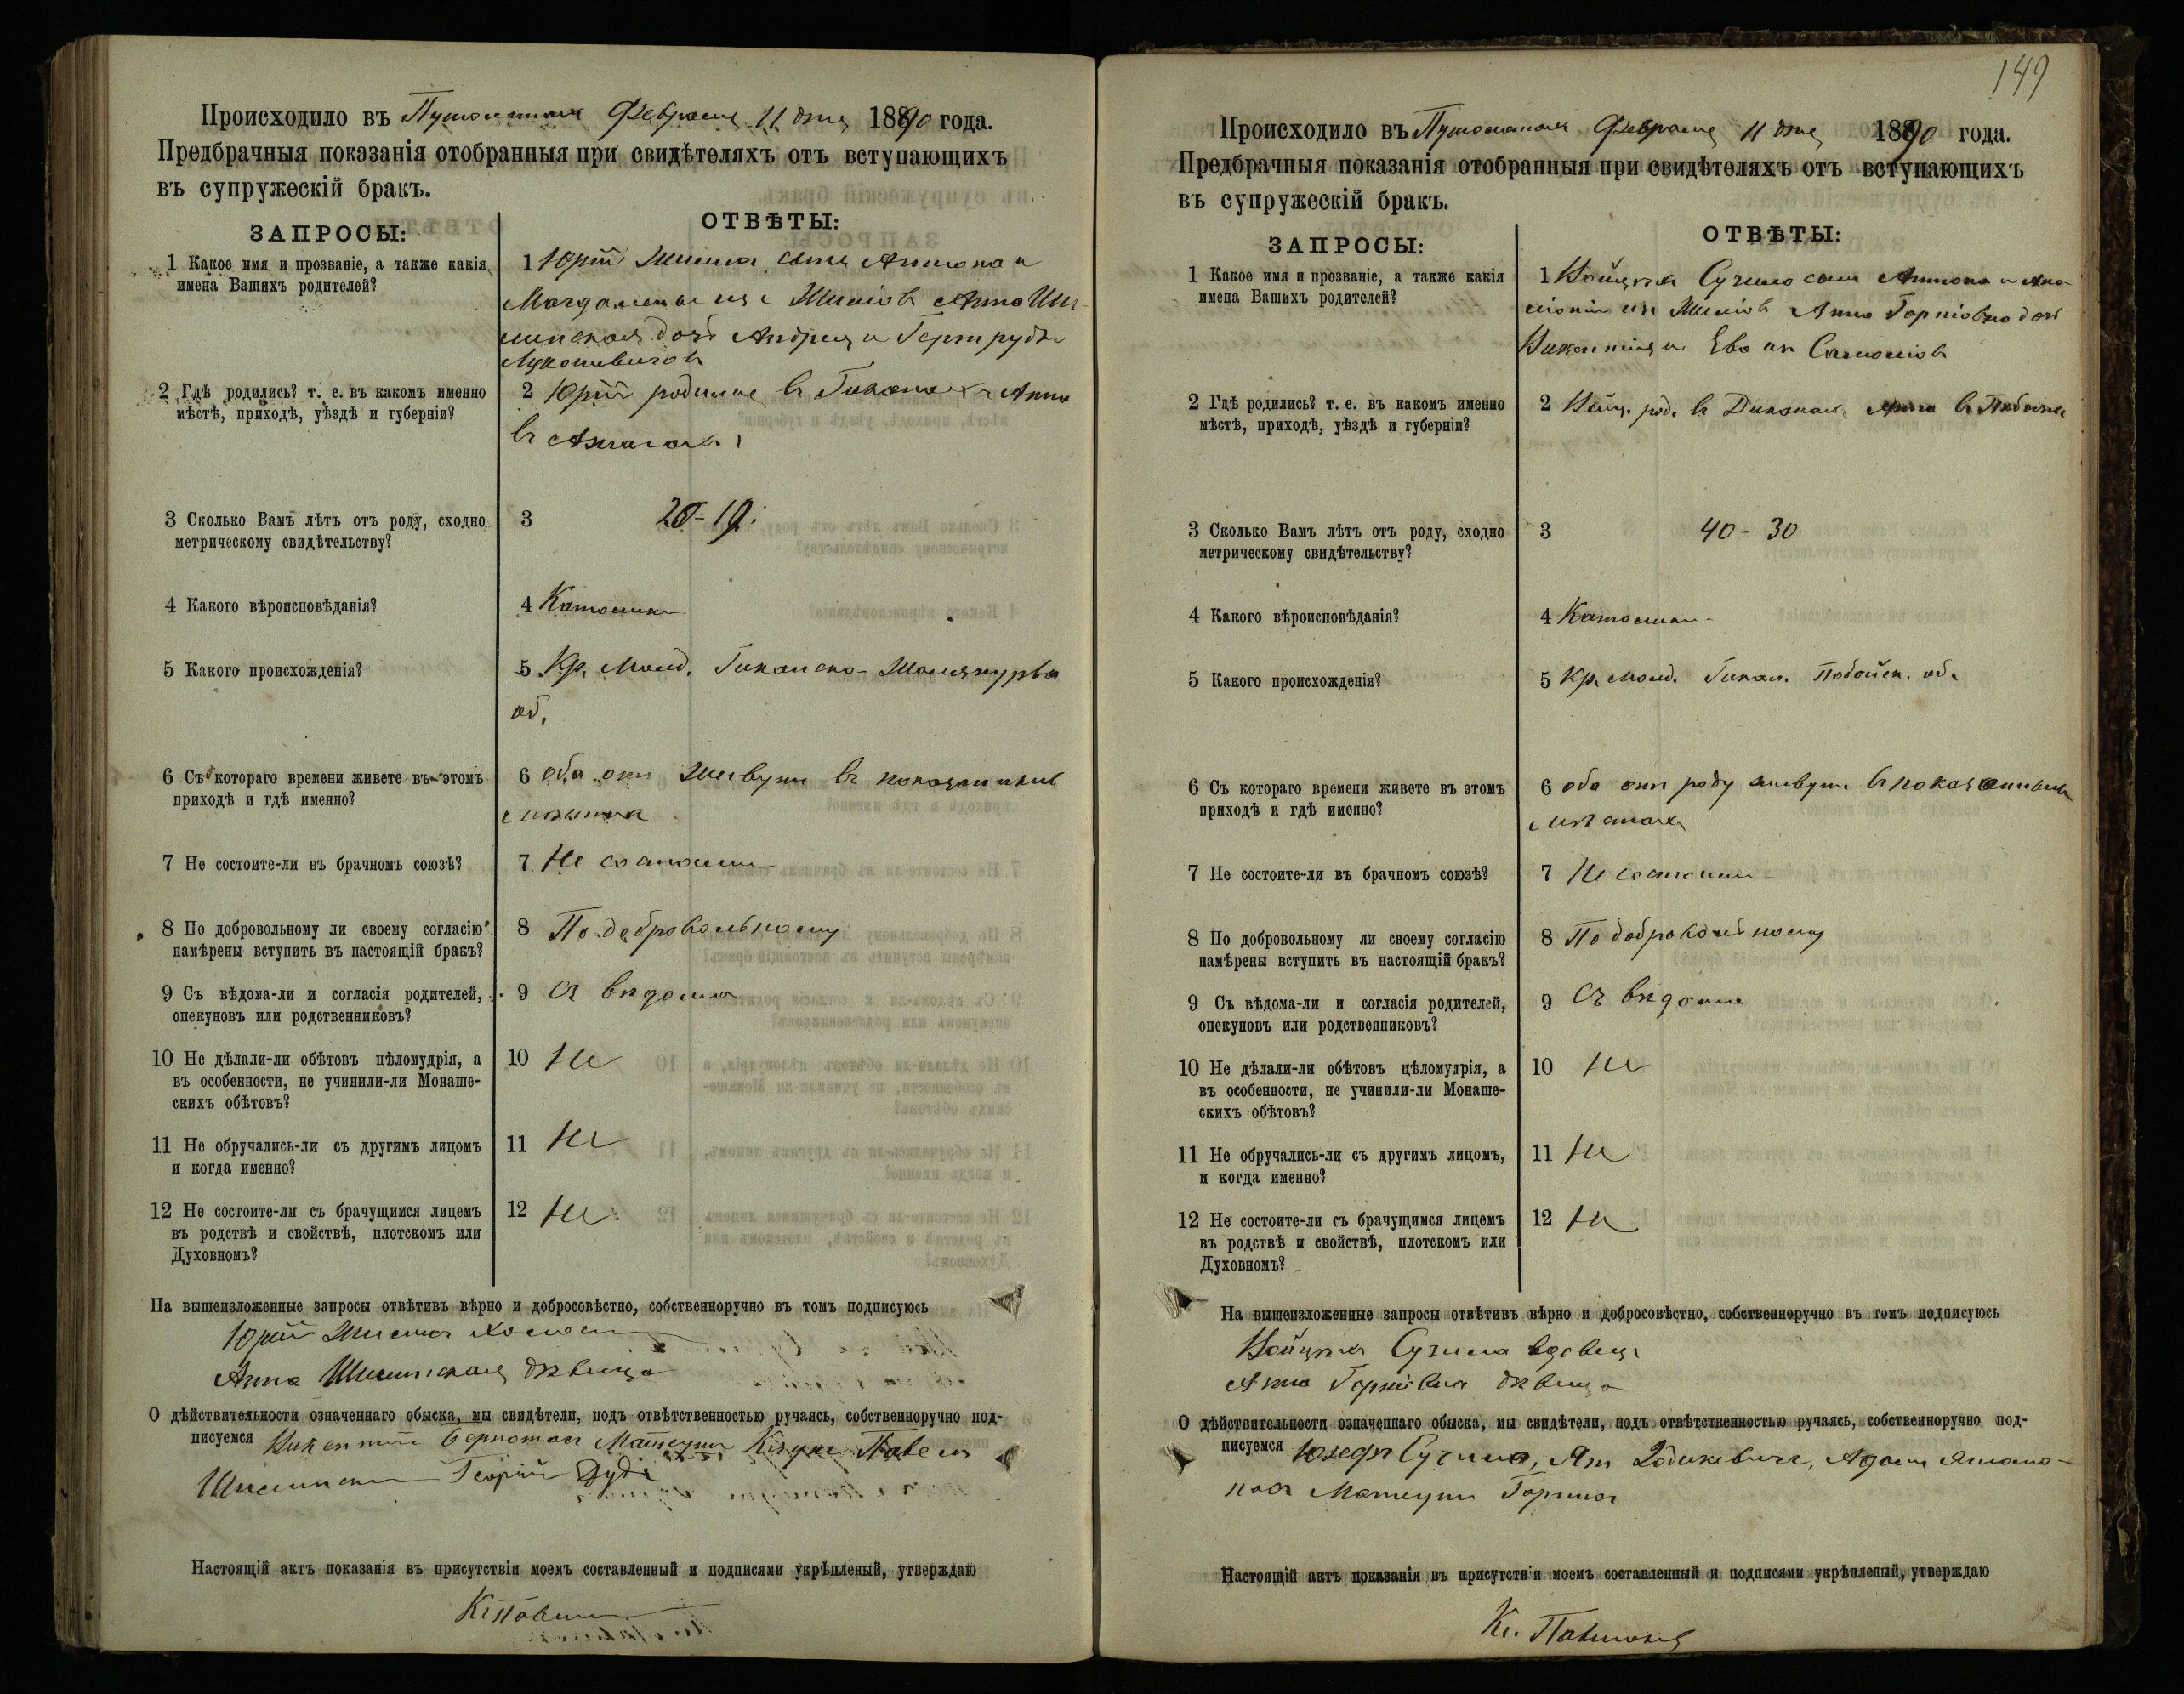 Происходило въ Февраля 11 дня 1890 года.
Предбрачныя показанія отобранныя при свидѣтеляхъ отъ вступающихъ
въ супружескій бракъ.
ЗАПРОСЫ:
ОТВѢТЫ:
1 Какое имя и прозваніе, а также какія
имена Вашихъ родителей?
1 Юрій сынъ Антона и
Магдалены Анна
дочь Андрея и Гертруды
2 Гдѣ родились? т. е. въ какомъ именно
мѣстѣ, приходѣ, уѣздѣ и губерніи?
2 Юрій родился въ Анна
въ
3 Сколько Вамъ лѣтъ отъ роду, сходно
метрическому свидѣтельству?
3 19.
4 Какого вѣроисповѣданія?
4 Католики
5 Какого происхожденія?
5 Кр.
об.
6 Съ котораго времени живете въ этомъ
приходѣ и гдѣ именно?
6 оба они живутъ въ
7 Не состоите-ли въ брачномъ союзѣ?
7 Не состоимъ
8 По добровольному ли своему согласію
намѣрены вступить въ настоящій бракъ?
8 По добровольному
9 Съ вѣдома-ли и согласія родителей,
опекуновъ или родственниковъ?
9 Съ вѣдома
10 Не дѣлали-ли обѣтовъ цѣломудрія, а
въ особенности, не учинили-ли Монаше-
скихъ обѣтовъ?
10 Не
11 Не обручались-ли съ другимъ лицомъ
и когда именно?
11 Не
12 Не состоите-ли съ брачущимся лицемъ
въ родствѣ и свойствѣ, плотскомъ или
Духовномъ?
12 Не
На вышеизложенные запросы отвѣтивъ вѣрно и добросовѣстно, собственноручно въ томъ подписуюсь
Юрій
Анна дѣвица
О дѣйствительности означеннаго обыска, мы свидѣтели, подъ отвѣтственностью ручаясь, собственноручно под-
писуемся Викентій
Георгій
Настоящій актъ показанія въ присутствіи моемъ составленный и подписями укрѣпленый, утверждаю
149
Происходило въ Февраля 11 дня 1890 года.
Предбрачныя показанія отобранныя при свидѣтеляхъ отъ вступающихъ
въ супружескій бракъ.
ЗАПРОСЫ:
ОТВѢТЫ:
1 Какое имя и прозваніе, а также какія
имена Вашихъ родителей?
1 сынъ Антона и
Анна дочь
Викентія и Евы
2 Гдѣ родились? т. е. въ какомъ именно
мѣстѣ, приходѣ, уѣздѣ и губерніи?
2 род. въ Анна въ
3 Сколько Вамъ лѣтъ отъ роду, сходно
метрическому свидѣтельству?
3 40 - 30
4 Какого вѣроисповѣданія?
4 Католики
5 Какого происхожденія?
5 Кр. об.
6 Съ котораго времени живете въ этомъ
приходѣ и гдѣ именно?
6 оба они роду живутъ въ
мѣстахъ
7 Не состоите-ли въ брачномъ союзѣ?
7 Не состоимъ
8 По добровольному ли своему согласію
намѣрены вступить въ настоящій бракъ?
8 По добровольному
9 Съ вѣдома-ли и согласія родителей,
опекуновъ или родственниковъ?
9 Съ вѣдома
10 Не дѣлали-ли обѣтовъ цѣломудрія, а
въ особенности, не учинили-ли Монаше-
скихъ обѣтовъ?
10 Не
11 Не обручались-ли съ другимъ лицомъ,
и когда именно?
11 Не
12 Не состоите-ли съ брачущимся лицемъ
въ родствѣ и свойствѣ, плотскомъ или
Духовномъ?
12 Не
На вышеизложенные запросы отвѣтивъ вѣрно и добросовѣстно, собственноручно въ томъ подписуюсь
вдовецъ
Анна дѣвица
О дѣйствительности означеннаго обыска, мы свидѣтели, подъ отвѣтственностью ручаясь, собственноручно под-
писуемся Юзефъ
Настоящій актъ показанія въ присутствіи моемъ составленный и подписями укрѣпленый, утверждаю
Кс.